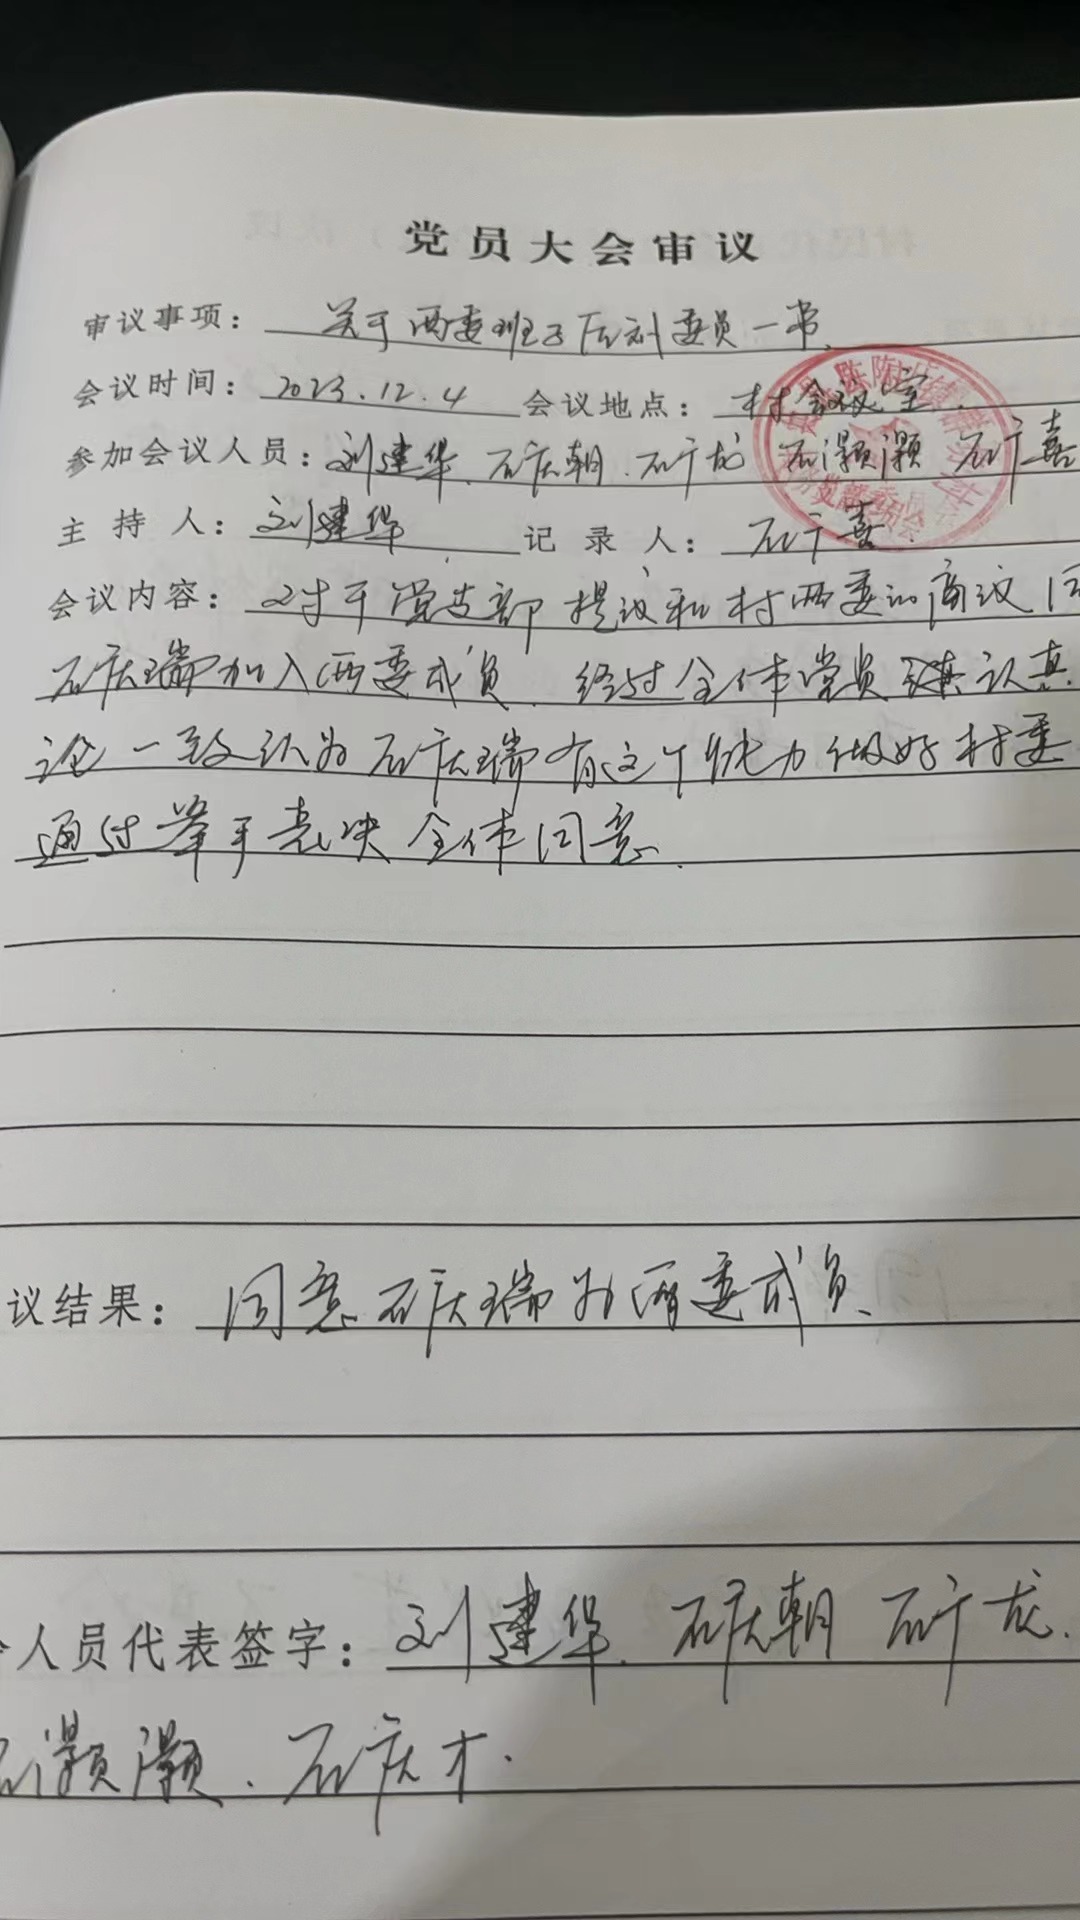 党员大会审议
审议事项：关于两委班子后刘委员一事.
会议时间：2023.12.4 会议地点：村会议室.
参加会议人员：刘建华.石庆朝.石广龙 石灏灏 石广嘉
主持人：刘建华 记录人：石广嘉.
会议内容：对于党支部提议和村两委的商议同
石庆瑞加入两委成员.经过全体党员 认真
论一致认为石庆瑞有这个能力做好村委
通过举手表决全体同意.
议结果：同意石庆瑞为两委成员.
人员代表签字：刘建华.石庆朝 石广龙.
石灏灏.石庆才.